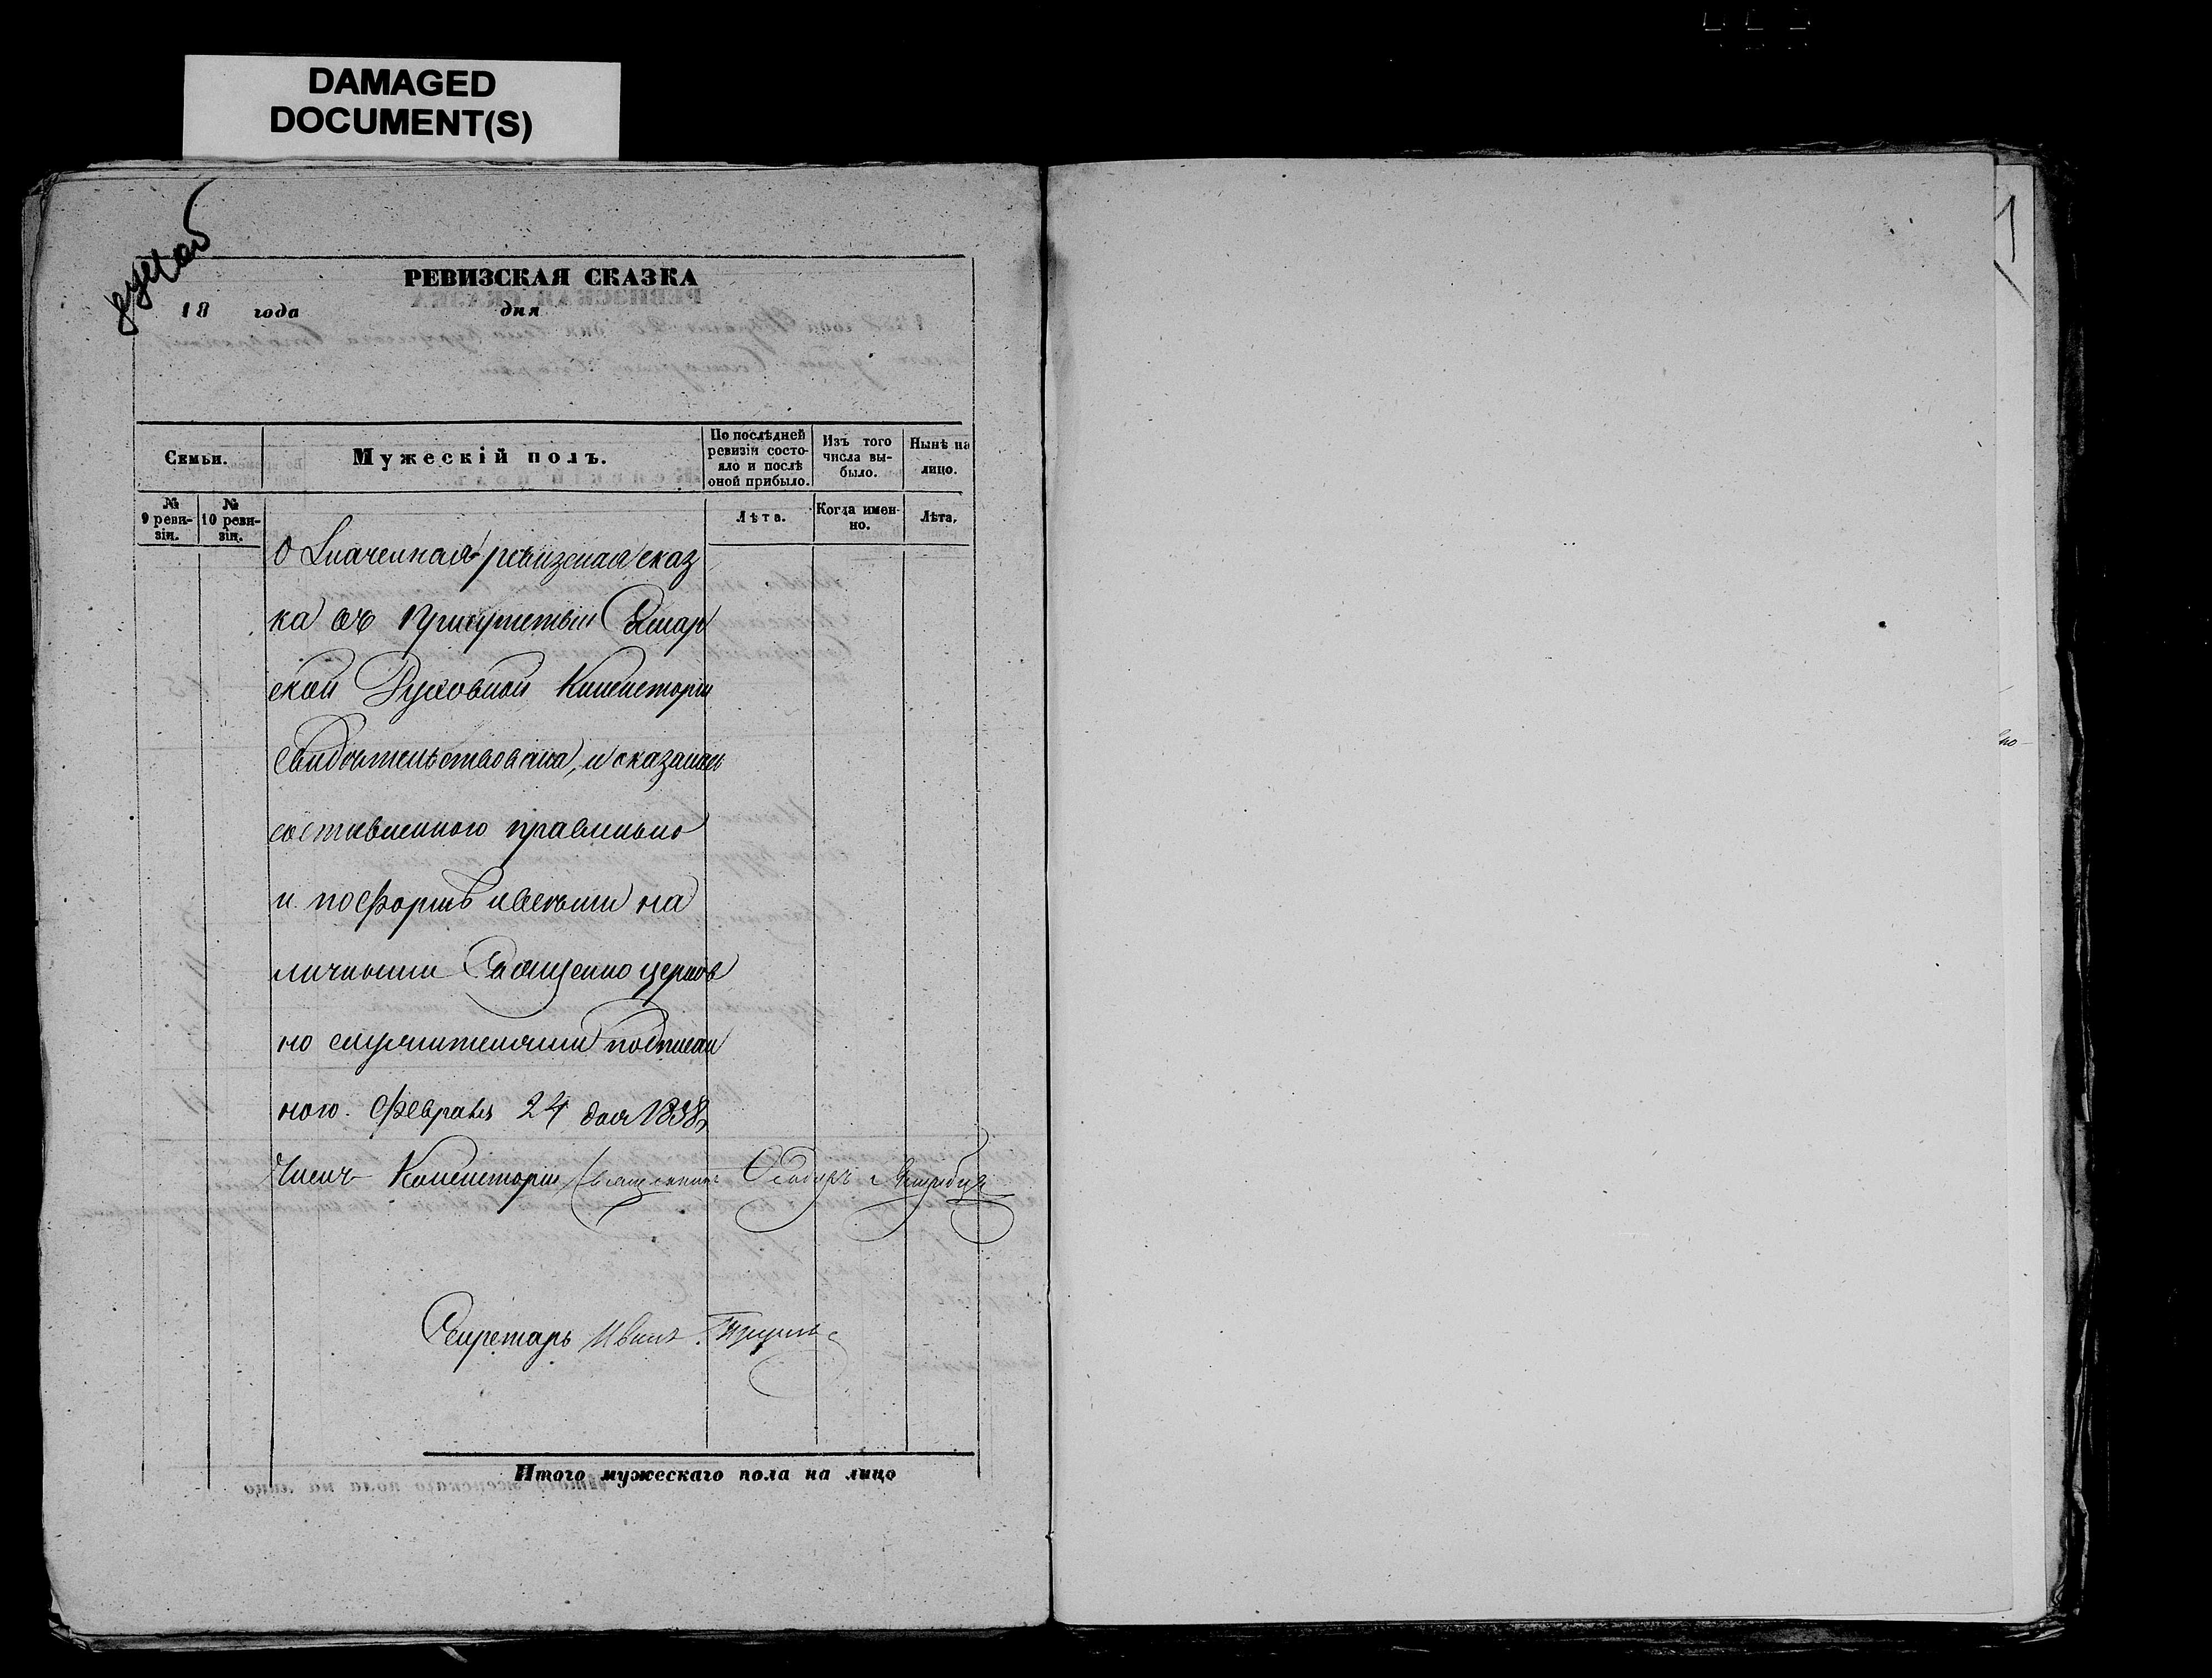 DAMAGED
DOCUMENT(S)
РЕВИЗСКАЯ СКАЗКА
18 года дня
Семьи.
Мужескій полъ.
По послѣдней ревизіи состояло и послѣ оной прибыло.
Изъ того числа выбыло.
Нынѣ на лицо.
№ 9 ревизіи.
№ 10 ревизіи.
Лѣта.
Когда именно.
Лѣта.
Означенная ревизская сказ
ка въ присутствіи Самар
ской Духовной Консисторіи
свидѣтельствована, и оказалась
составленною правильно
и по формѣ и всѣми на
личными Священно церков
но служителями подписан
ною. Февраля 24 дня 1858
Членъ Консисторіи Священникъ
Секретарь Иванъ
Итого мужескаго пола на лицо